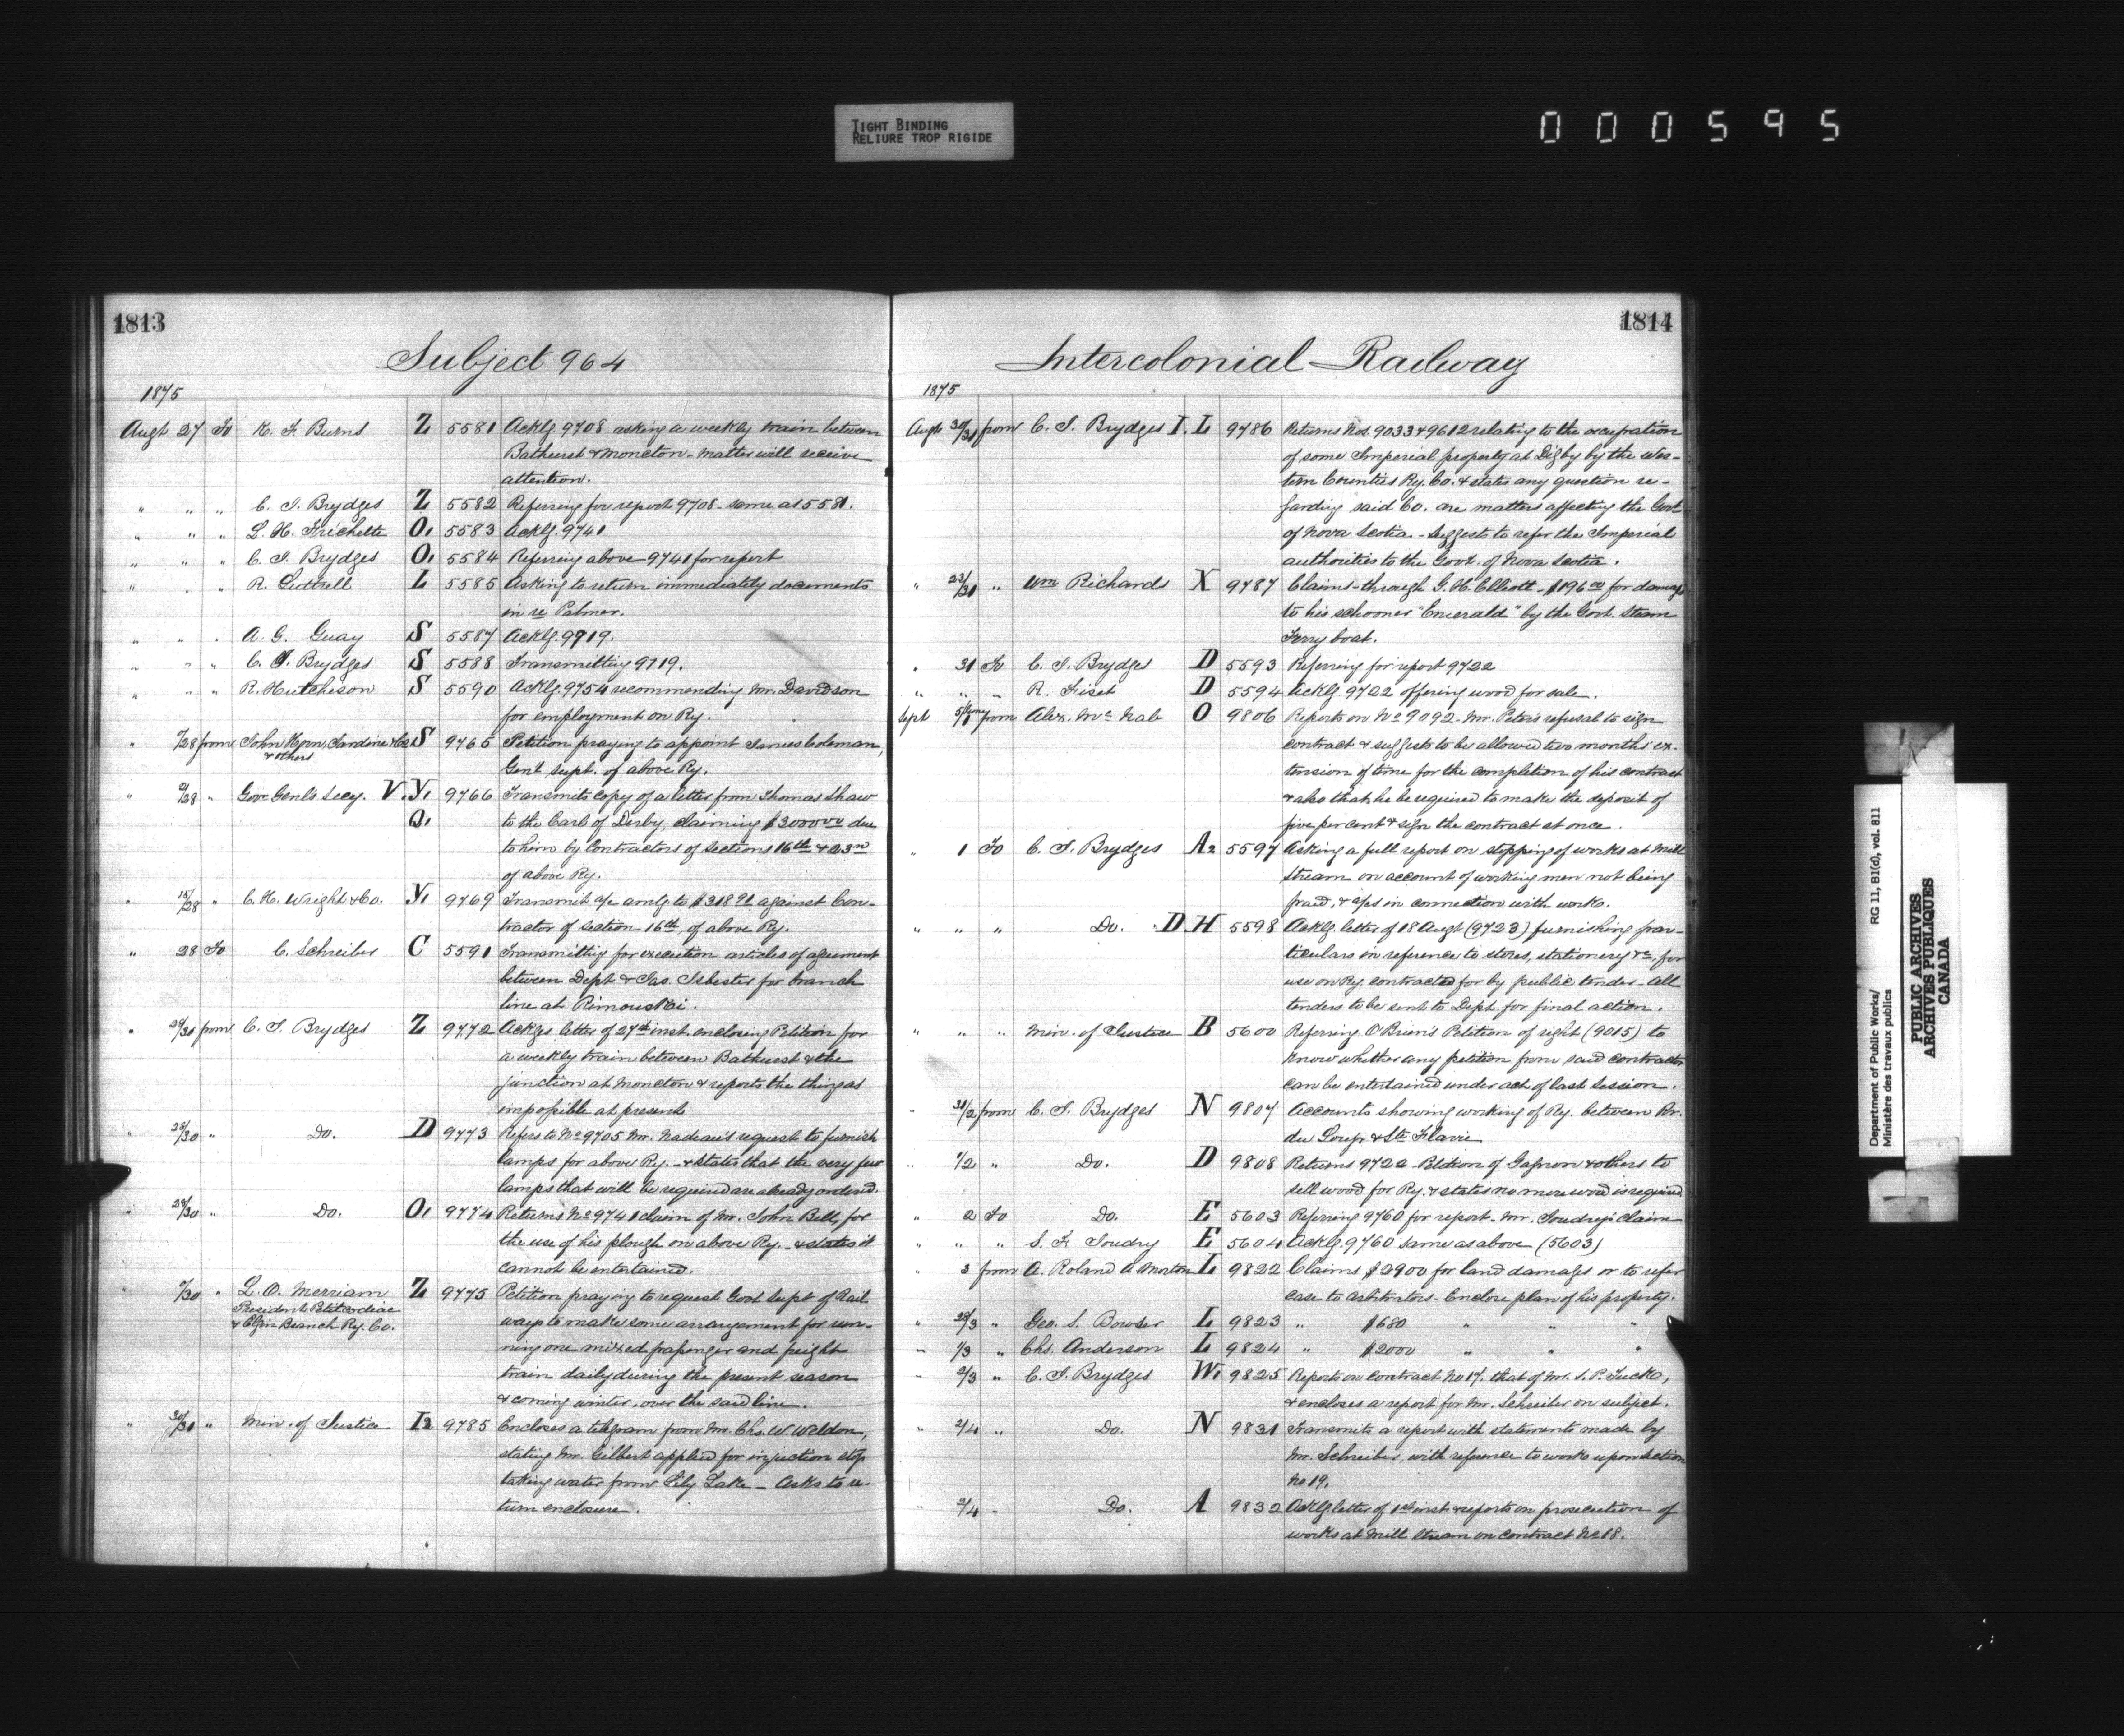 TIGHT BINDING
RELIURE TROP RIGIDE
000595
1813
Subject 964
1875
Augt 27 To K. F. Burns Z 5581 Ackg. 9708 asking a weekly train between
Bathurst & Moncton - matter will receive
attention.
" " " C. J. Brydges Z 5582 Referring for report 9708 - same as 5581.
" " " L. H. Frichette O1 5583 Ackg. 9741
" " " C. J. Brydges O1 5584 Referring above 9741 for report
" " " R. Luttrell L 5585 Asking to return immediately documents
in re Palmer.
" " " A. G. Guay S 5587 Ackg. 9719.
" " " C. J. Brydges S 5588 Transmitting 9719.
" " " R. Hutcheson S 5590 Ackg. 9754 recommending Mr. Davidson
for employment on Ry.
" /28 from John Hern, Jardine & Co S 9765 Petition praying to appoint James Coleman,
& others
Genl. Supt. of above Ry.
" /28 " Gov. Genl's Secy. V. Y1 9766 Transmits copy of a letter from Thomas Shaw
Q1 to the Earl of Derby, claiming $3000 00 due
to him by Contractors of Sections 16th & 23rd
of above Ry.
" 18/28 " C. H. Wright & Co. Y1 9769 Transmit a/c amtg to $318 91 against Con-
tractor of section 16th, of above Ry.
" 28 To C. Schreiber C 5591 Transmitting for execution articles of agreement
between Dept & Jas. Isbester for branch
line at Rimouski.
" 28/30 from C. J. Brydges Z 9772 Ackgs letter of 27th inst. enclosing Petition for
a weekly train between Bathurst & the
junction at Moncton & reports the thing as
impossible at present
" 28/30 " Do. D 9773 Refers to No 9705 Mr. Nadeau's request to furnish
lamps for above Ry. - & states that the very few
lamps that will be required are already ordered.
" 28/30 " Do. O1 9774 Returns No 9741 claim of Mr. John Bell, for
the use of his plough on above Ry. - & states it
cannot be entertained.
" /30 " L. O. Merriam Z 9775 Petition praying to request Govt Supt of Rail-
President Petitcodiac
& Elgin Branch Ry. Co.
ways to make some arrangement for run-
ning one mixed passenger and freight
train daily during the present season
& coming winter, over the said line.
" 30/31 " Min. of Justice I2 9785 Encloses a telegram from Mr. Chs. W. Weldon,
stating Mr. Gilbert applied for injuction stop
taking water from Lily Lake - Asks to re-
turn enclosure.
1814
Intercolonial Railway
1875
Augt 30/31 from C. J. Brydges I. L 9786 Returns Nos. 9033 & 9612 relating to the occupation
of some Imperial property at Digby by the Wes-
tern Counties Ry. Co. & states any question re-
garding said Co. are matters affecting the Govt
of Nova Scotia - Suggests to refer the Imperial
authorities to the Govt. of Nova Scotia.
" 23/31 " Wm Richards X 9787 Claims - through G. H. Elliott - $196 00 for damage
to his schooner "Emerald" by the Govt. Steam
Ferry boat.
" 31 To C. J. Brydges D 5593 Referring for report 9722
" " " R. Fiset D 5594 Ackg. 9722 offering wood for sale.
Sept from Alex. McNab O 9806 Reports on No 9092 - Mr. Peter's refusal to sign
contract & suggests to be allowed two months ex-
tension of time for the completion of his contract
& also that he be required to make the deposit of
five per cent & sign the contract at once.
" 1 To C. J. Brydges A2 5597 Asking a full report on stopping of works at Mill
Stream on account of working men not being
paid, & a/cs in connection with works.
" " " Do. D. H 5598 Ackg. letter of 18 Augt (9723) furnishing par-
ticulars in reference to stores, stationery &c, for
use on Ry. contracted for by public tender - All
tenders to be sent to Dept. for final action.
" " " Min. of Justice B 5600 Referring O'Brien's Petition of right (9015) to
know whether any petition from said contractor
can be entertained under act of last Session.
" 31/2 from C. J. Brydges N 9807 Accounts showing working of Ry. between Riv.
du Loup & Ste Flavie
" 1/2 " Do. D 9808 Returns 9722 Petition of Gagnon & others to
sell wood for Ry. & states no more wood is required
" 2 To Do. E 5603 Referring 9760 for report - Mr. Soudry's claim
" " " S. F. Soudry E 5604 Ackg. 9760 same as above (5603)
" 3 from A. Roland A Morton L 9822 Claims $2900 for land damages or to refer
case to arbitrators - Enclose plan of his property.
" 28/3 " Geo. S. Bowser L 9823 " $680 " " "
" 1/3 " Chs. Anderson L 9824 " $2000 " " "
" 2/3 " C. J. Brydges W1 9825 Reports on contract No 17. that of Mr. S. P. Tuck,
& encloses a report for Mr. Schreiber on subject.
" 2/4 " Do. N 9831 Transmits a report with statements made by
Mr. Schreiber, with reference to work upon section
No 19.
" 2/4 " Do. A 9832 Ackg letter of 1st inst & reports on prosecution of
works at Mill Stream on contract No 18.
Department of Public Works/ RG 11, B1(d), vol. 811
Ministère des travaux publics
PUBLIC ARCHIVES
ARCHIVES PUBLIQUES
CANADA